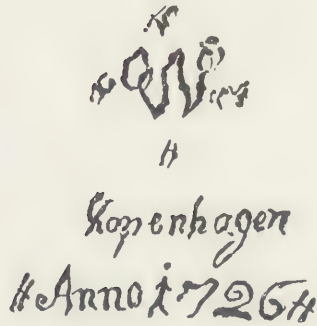 W
Kopenhagen
Anno 1726